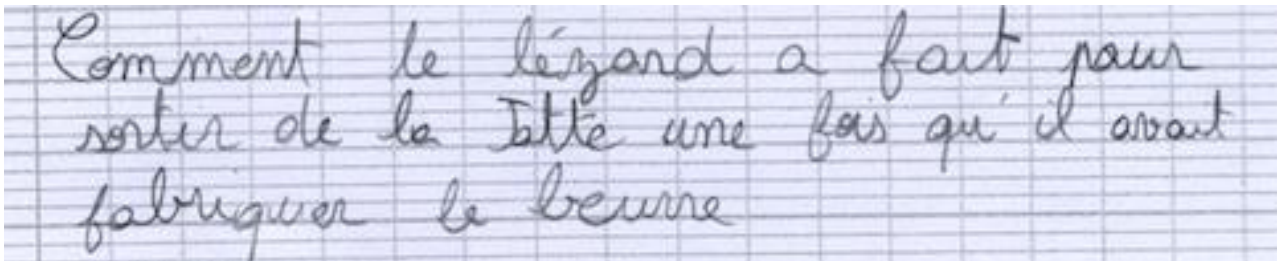 Comment le lézard a fait pour
sortir de la Jatte une fois qu'il avait
fabriquer le beurre